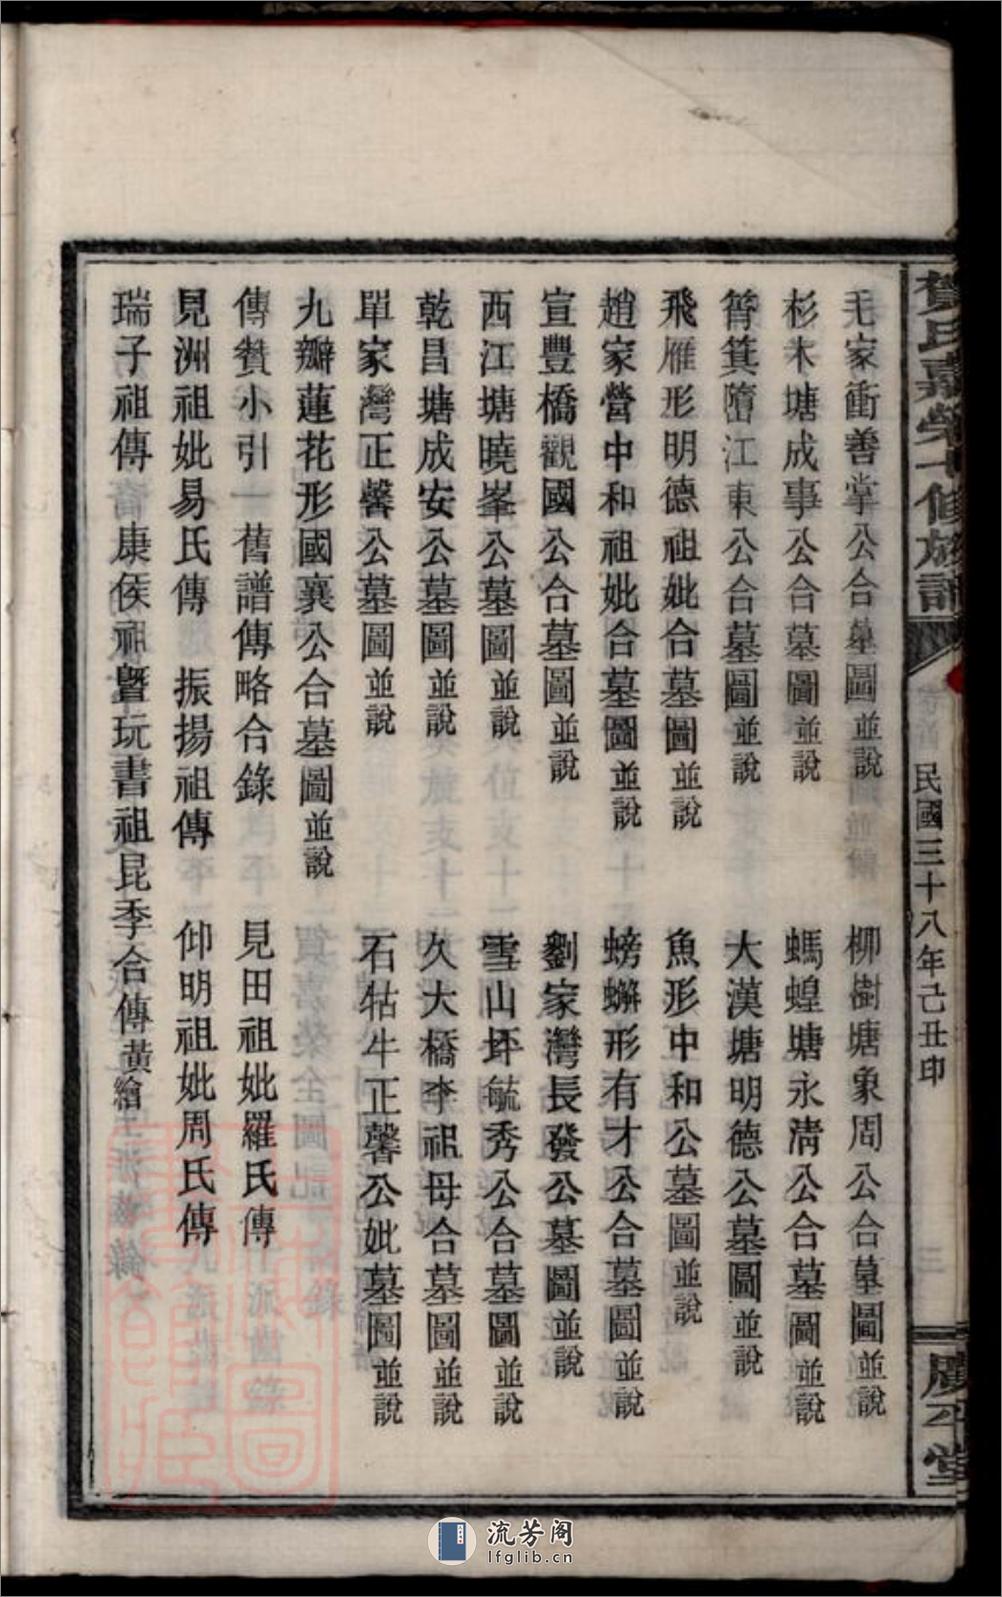 賀氏嘉榮十修族譜
卷首 民國三十八年己丑印
三
廣平堂
毛家衝善掌公合墓圖並說 柳樹塘象周公合墓圖並說
杉木塘成事公合墓圖並說 螞蝗塘永清公合墓圖並說
筲箕窩江東公合墓圖並說 大漢塘明德公墓圖並說
飛雁形明德祖妣合墓圖並說 魚形中和公墓圖並說
趙家營中和祖妣合墓圖並說 螃蠏形有才公合墓圖並說
宣豐橋觀國公合墓圖並說 劉家灣長發公墓圖並說
西江塘曉峯公墓圖並說 雪山坪毓秀公合墓圖並說
乾昌塘成安公墓圖並說 久大橋李祖母合墓圖並說
單家灣正馨公墓圖並說 石牯牛正馨公妣墓圖並說
九瓣蓮花形國襄公合墓圖並說
傳贊小引 舊譜傳略合錄 見田祖妣羅氏傳
見洲祖妣易氏傳 振揚祖傳 仰明祖妣周氏傳
瑞子祖傳 康侯祖暨玩書祖昆季合傳黃繪
流芳阁
lfglib.cn